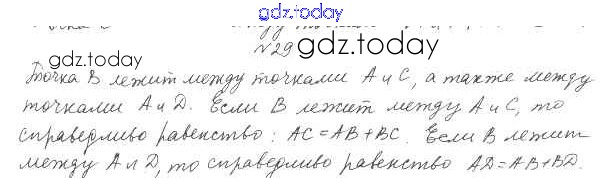 gdz.today
№29
gdz.today
gdz.today
Точка В лежит между точками А и С, а также между
точками А и D. Если В лежит между А и С, то
справедливо равенство: AC=AB+BC. Если В лежит
между А и D, то справедливо равенство AD=AB+BD.